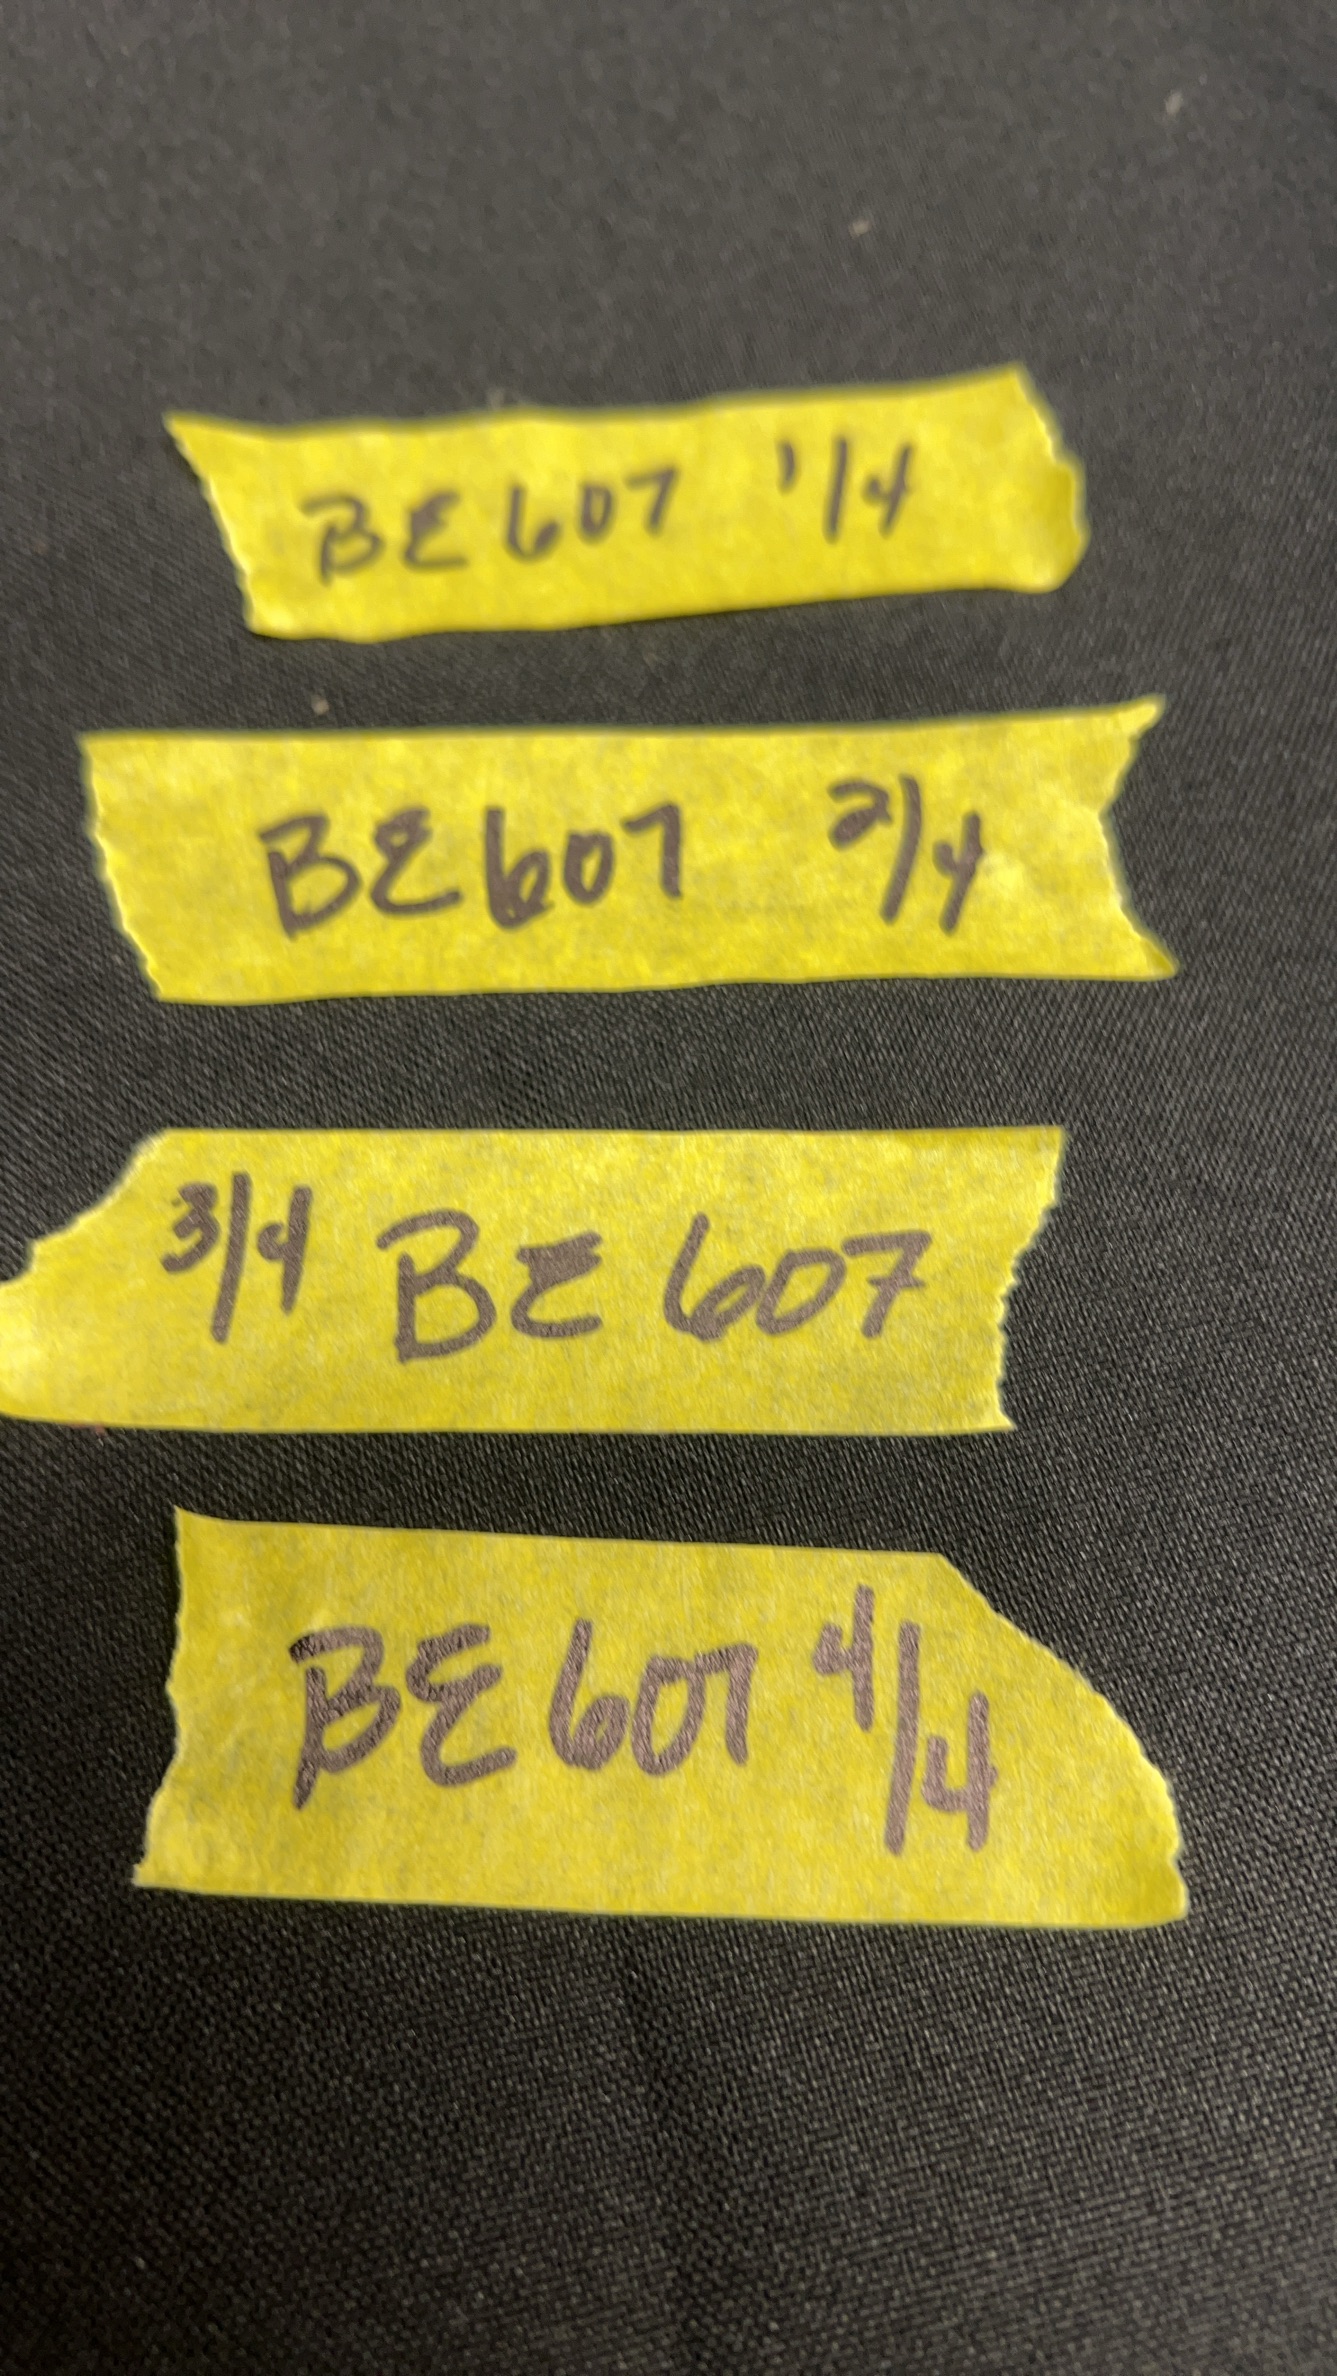 BE 607 1/4
BE 607 2/4
3/4 BE 607
BE 607 4/4